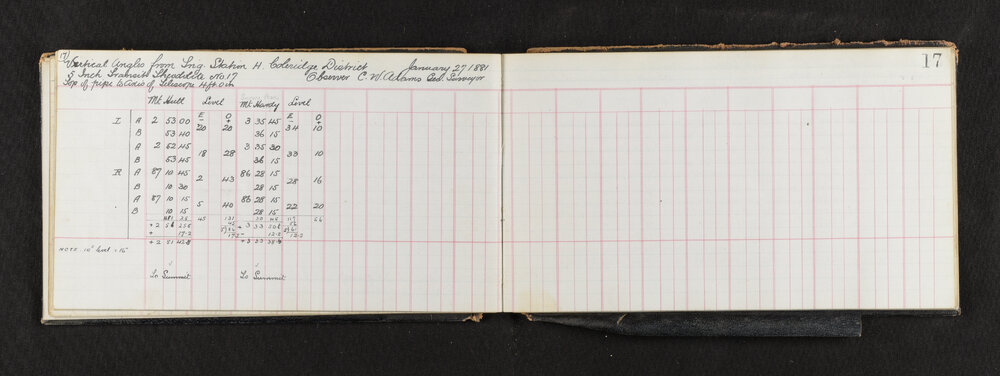 17)
Vertical Angles from Trig. Station H. Coleridge District January 27 1881
5 Inch Transit Theodolite No 17 Observer C W Adams Geod. Surveyor
Top of pipe to Axis of Telescope 4 ft 0 in
17
Mt Hutt Level Mt Hardy Level
E O E O
I A 2 53 00 20 20 3 35 45 34 10
B 53 40 36 15
A 2 52 45 18 28 3 35 30 33 10
B 53 45 36 15
R A 87 10 45 2 43 86 28 15 28 16
B 10 30 28 15
A 87 10 15 5 40 86 28 15 22 20
B 10 15 28 15
45 131 117 56
NOTE 10" level = 15"
To Summit To Summit